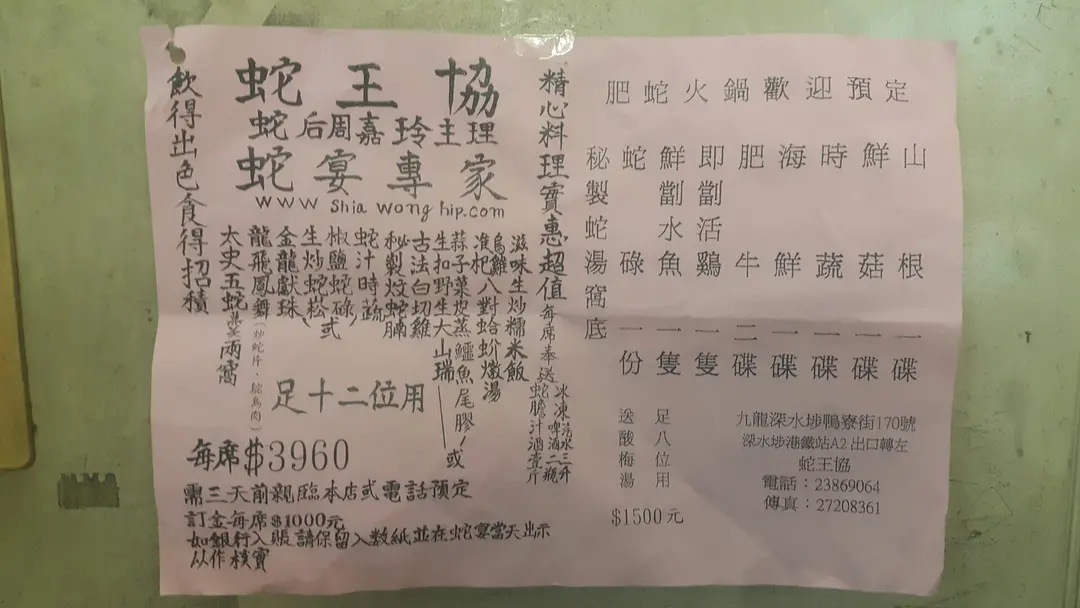 飲得出色食得招積
蛇王協
蛇后周嘉玲主理
蛇宴專家
www shia wong hip.com
精心料理實惠超值
每席奉送
冰凍汽水三升
啤酒二瓶
蛇膽汁酒壹斤
滋味生炒糯米飯
烏雞八對蛤蚧燉湯
淮杞
蒜子菜皮蒸鱷魚尾膠！或
生扣野生大山瑞——
古法白切雞
秘製炆蛇腩
蛇汁時蔬
椒鹽蛇碌）式
生炒蛇崧（
金龍獻珠
龍飛鳳舞（炒蛇片，鴕鳥肉）
太史五蛇羹兩窩
足十二位用
每席$3960
需三天前親臨本店或電話預定
訂金每席$1000元
如銀行入賬請保留入數紙並在蛇宴當天出示
以作核實
肥蛇火鍋歡迎預定
山根一碟
鮮菇一碟
時蔬一碟
海鮮一碟
肥牛二碟
即劏活鷄一隻
鮮劏水魚一隻
蛇碌一份
秘製蛇湯窩底
足八位用
送酸梅湯
$1500元
九龍深水埗鴨寮街170號
深水埗港鐵站A2出口轉左
蛇王協
電話：23869064
傳真：27208361